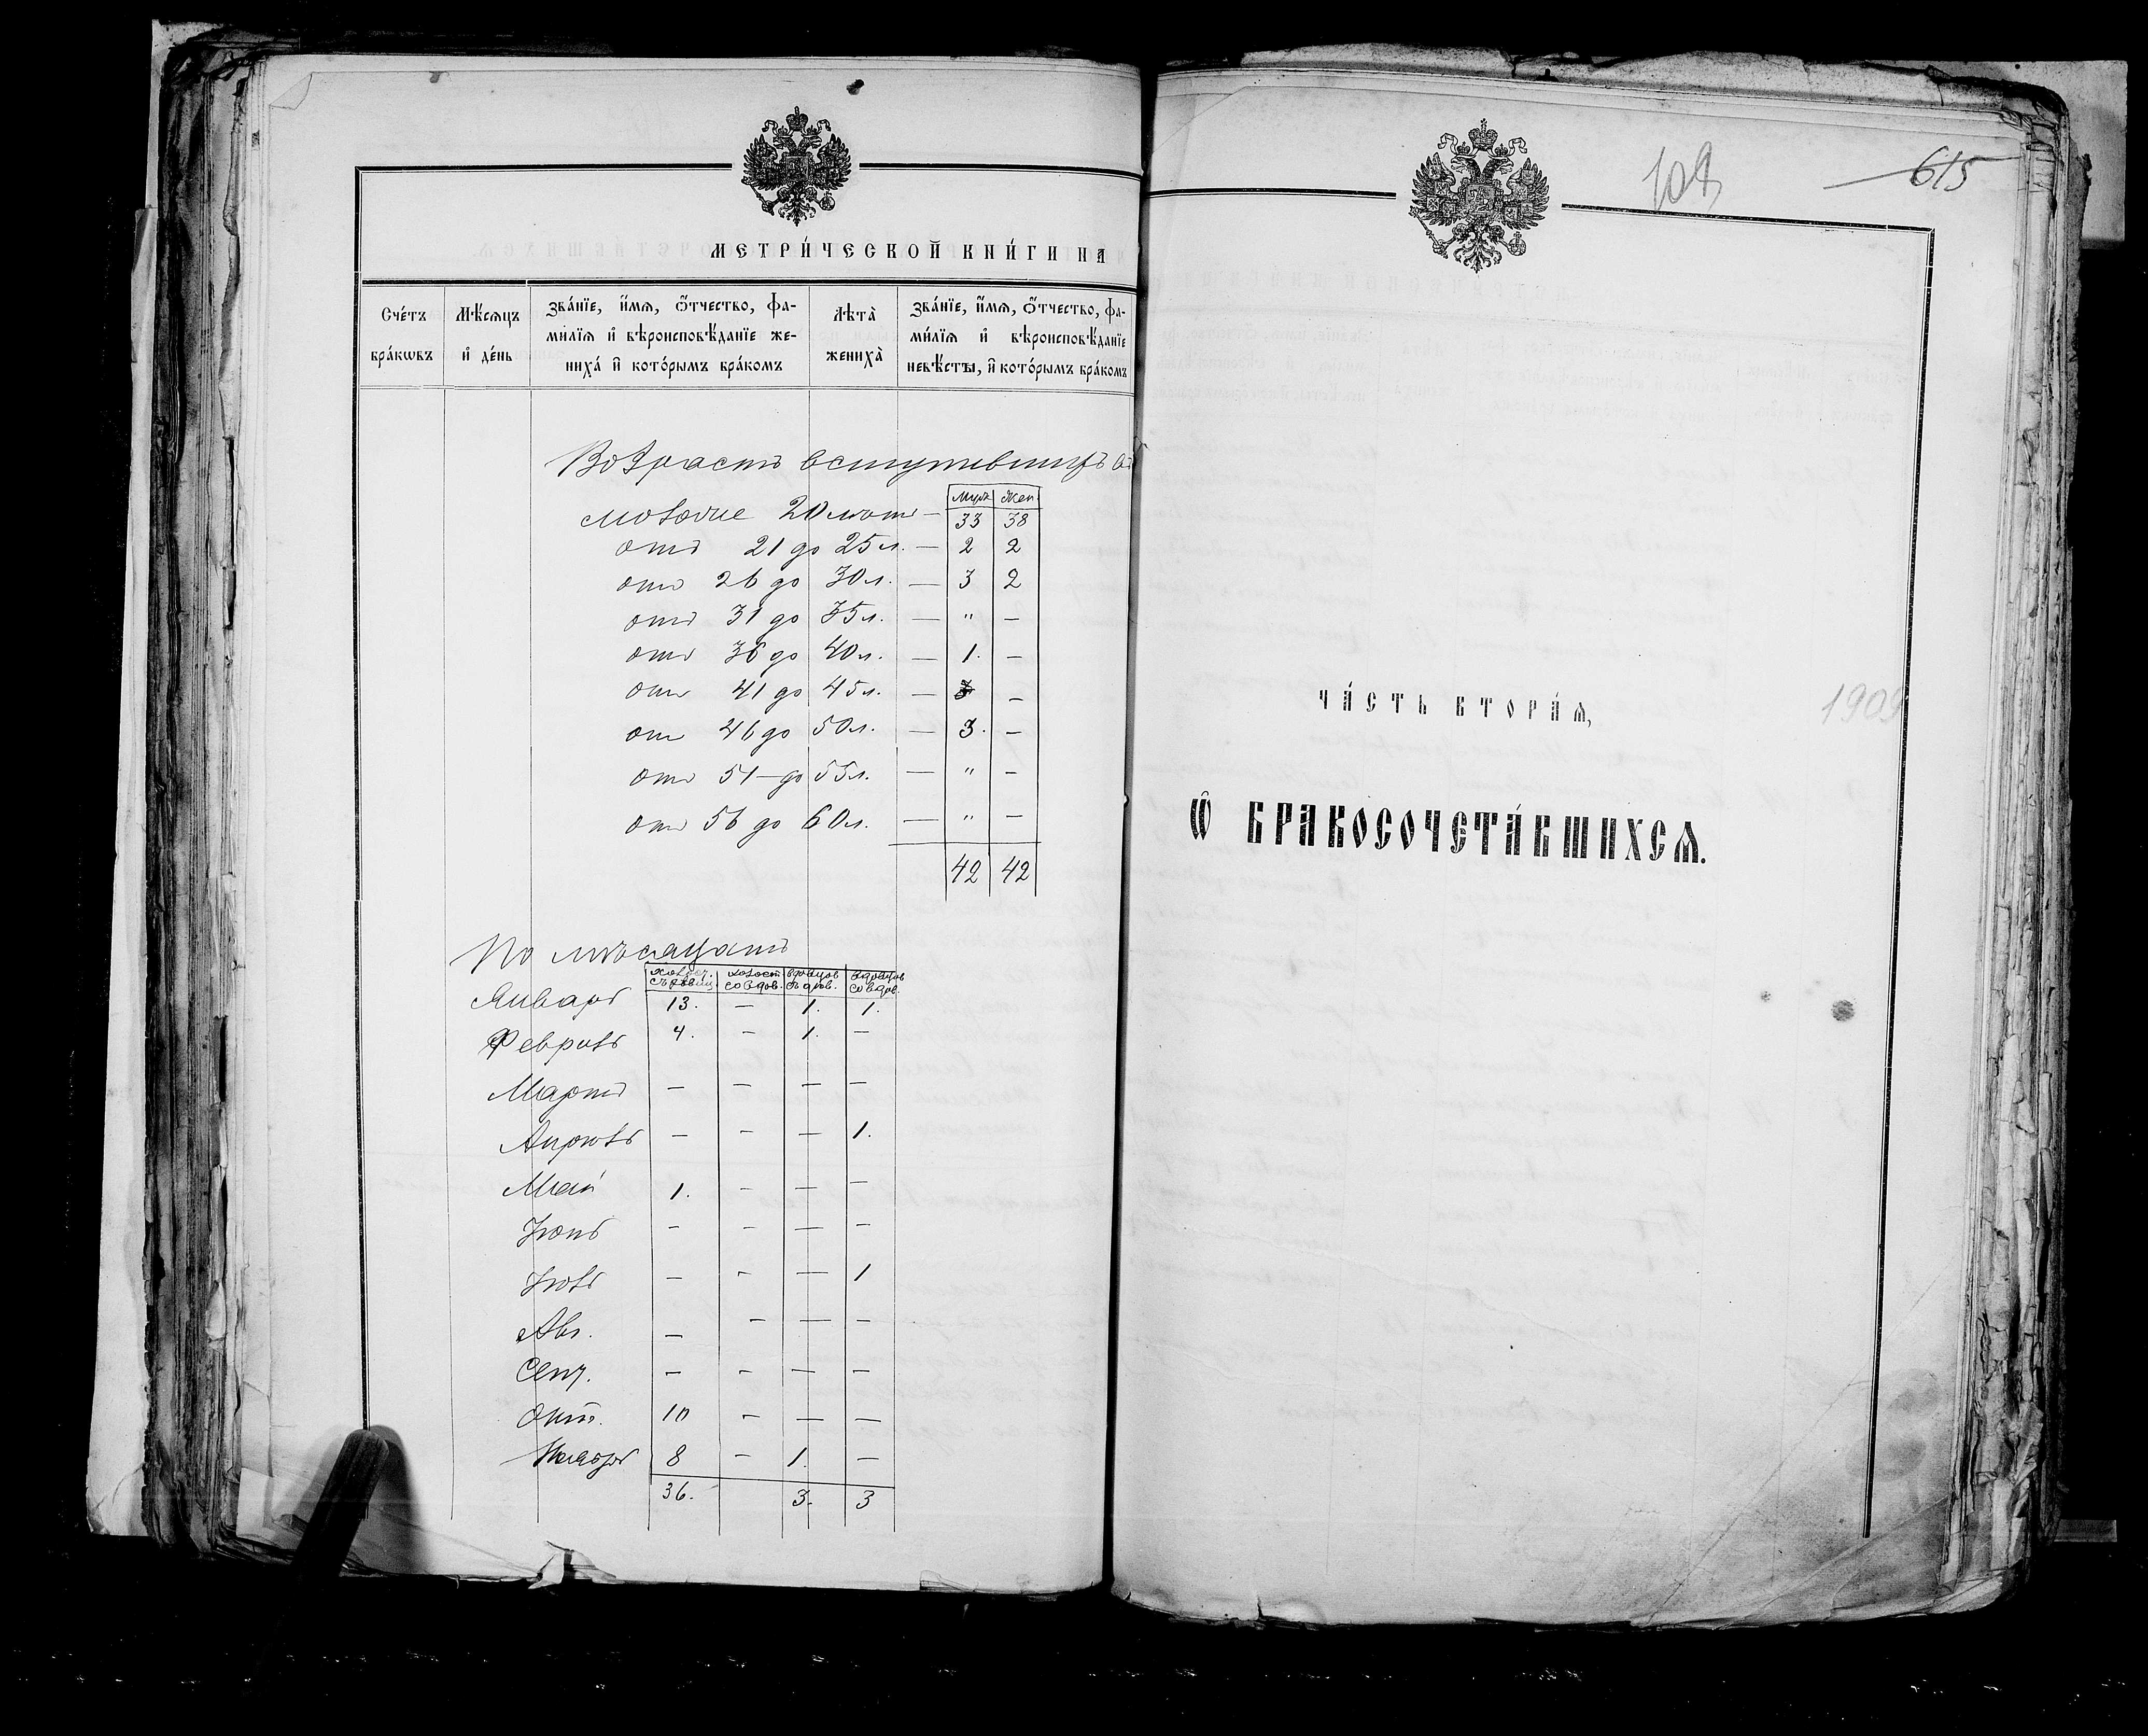 МЕТРИ́ЧЕСКОЙ КНИ́ГИ НА
Сче́тъ бра́кѡвъ
Мѣ́сѧцъ и҆ де́нь
Зва́нїе, и҆́мѧ, ѻ҆́тчество, фа-
ми́лїѧ и҆ вѣроисповѣ́данїе же-
ниха̀ и҆ кото́рымъ бра́комъ
Лѣта̀ жениха̀
Зва́нїе, и҆́мѧ, ѻ҆́тчество, фа-
ми́лїѧ и҆ вѣроисповѣ́данїе
невѣ́сты, и҆ кото́рымъ бра́комъ
Возрастъ вступившихъ
Муж Жен.
моложе 20 лѣтъ — 33 38
отъ 21 до 25 л. — 2 2
отъ 26 до 30 л. — 3 2
отъ 31 до 35 л. — " —
отъ 36 до 40 л. — 1. —
отъ 41 до 45 л. — —
отъ 46 до 50 л. — 3. —
отъ 51 — до 55 л. — " —
отъ 56 до 60 л. — " —
42 42
По мѣсяцамъ
холост. съ дѣвиц. холост со вдов. вдовцов съ дѣв. вдовцов со вдов.
Январь 13. — 1. 1.
Февраль 4. — 1. —
Мартъ — — — —
Апрѣль — — — 1.
Май 1. — — —
Іюнь — — — —
Іюль — — — 1
Авг. — — — —
Сент. — — — —
Окт. 10 — — —
Ноябрь 8 — 1. —
36. 3. 3
109
615
ЧА́СТЬ ВТОРА́Ѧ,
1909
Ѽ БРАКОСОЧЕТА́ВШИХСѦ.